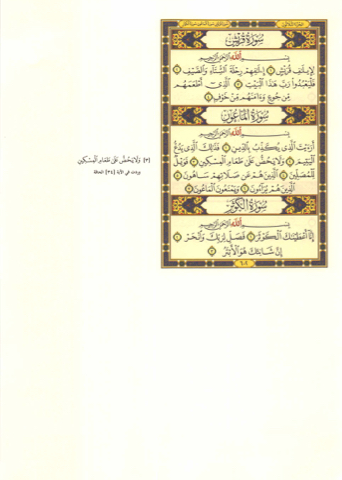 سُورَةُ قُرَيْشٍ
بِسْمِ اللَّهِ الرَّحْمَٰنِ الرَّحِيمِ
لِإِيلَٰفِ قُرَيْشٍ ١ إِۦلَٰفِهِمْ رِحْلَةَ الشِّتَآءِ وَالصَّيْفِ ٢
فَلْيَعْبُدُوا۟ رَبَّ هَٰذَا الْبَيْتِ ٣ الَّذِىٓ أَطْعَمَهُم
مِّن جُوعٍ وَءَامَنَهُم مِّنْ خَوْفٍۭ ٤
سُورَةُ الْمَاعُونِ
بِسْمِ اللَّهِ الرَّحْمَٰنِ الرَّحِيمِ
أَرَءَيْتَ الَّذِى يُكَذِّبُ بِالدِّينِ ١ فَذَٰلِكَ الَّذِى يَدُعُّ
الْيَتِيمَ ٢ وَلَا يَحُضُّ عَلَىٰ طَعَامِ الْمِسْكِينِ ٣ فَوَيْلٌ
لِّلْمُصَلِّينَ ٤ الَّذِينَ هُمْ عَن صَلَاتِهِمْ سَاهُونَ ٥
الَّذِينَ هُمْ يُرَآءُونَ ٦ وَيَمْنَعُونَ الْمَاعُونَ ٧
سُورَةُ الْكَوْثَرِ
بِسْمِ اللَّهِ الرَّحْمَٰنِ الرَّحِيمِ
إِنَّآ أَعْطَيْنَٰكَ الْكَوْثَرَ ١ فَصَلِّ لِرَبِّكَ وَانْحَرْ ٢
إِنَّ شَانِئَكَ هُوَ الْأَبْتَرُ ٣
٦٠٢
[٣] وَلَا يَحُضُّ عَلَىٰ طَعَامِ الْمِسْكِينِ
وردت في الآية [٣٤] الحاقة